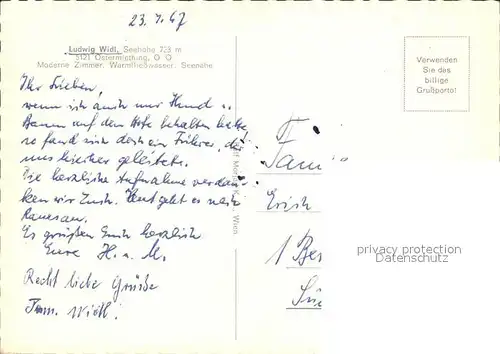 23.7.67
Ludwig Widl, Seehöhe 723 m
5121 Ostermiething, O Ö
Moderne Zimmer, Warmfließwasser, Seenähe
Verwenden
Sie das
billige
Grußporto!
Ihr Lieben,
wenn ich auch nur Hund u.
auf dem Hofe behalten hatte,
so fand sich doch ein Führer, der
uns hierher geleitete.
Die herzliche Aufnahme verdan-
ken wir Euch. Heut geht es nach
Es grüßen Euch herzlich
Eure H. u. M.
Recht liebe Grüße
Fam. Widl.
Fam
Erich
1 Ber
privacy protection
Datenschutz